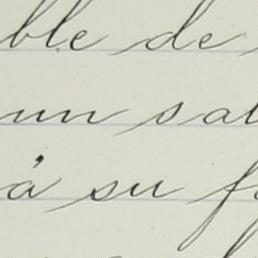 ble de
un sal
á su f